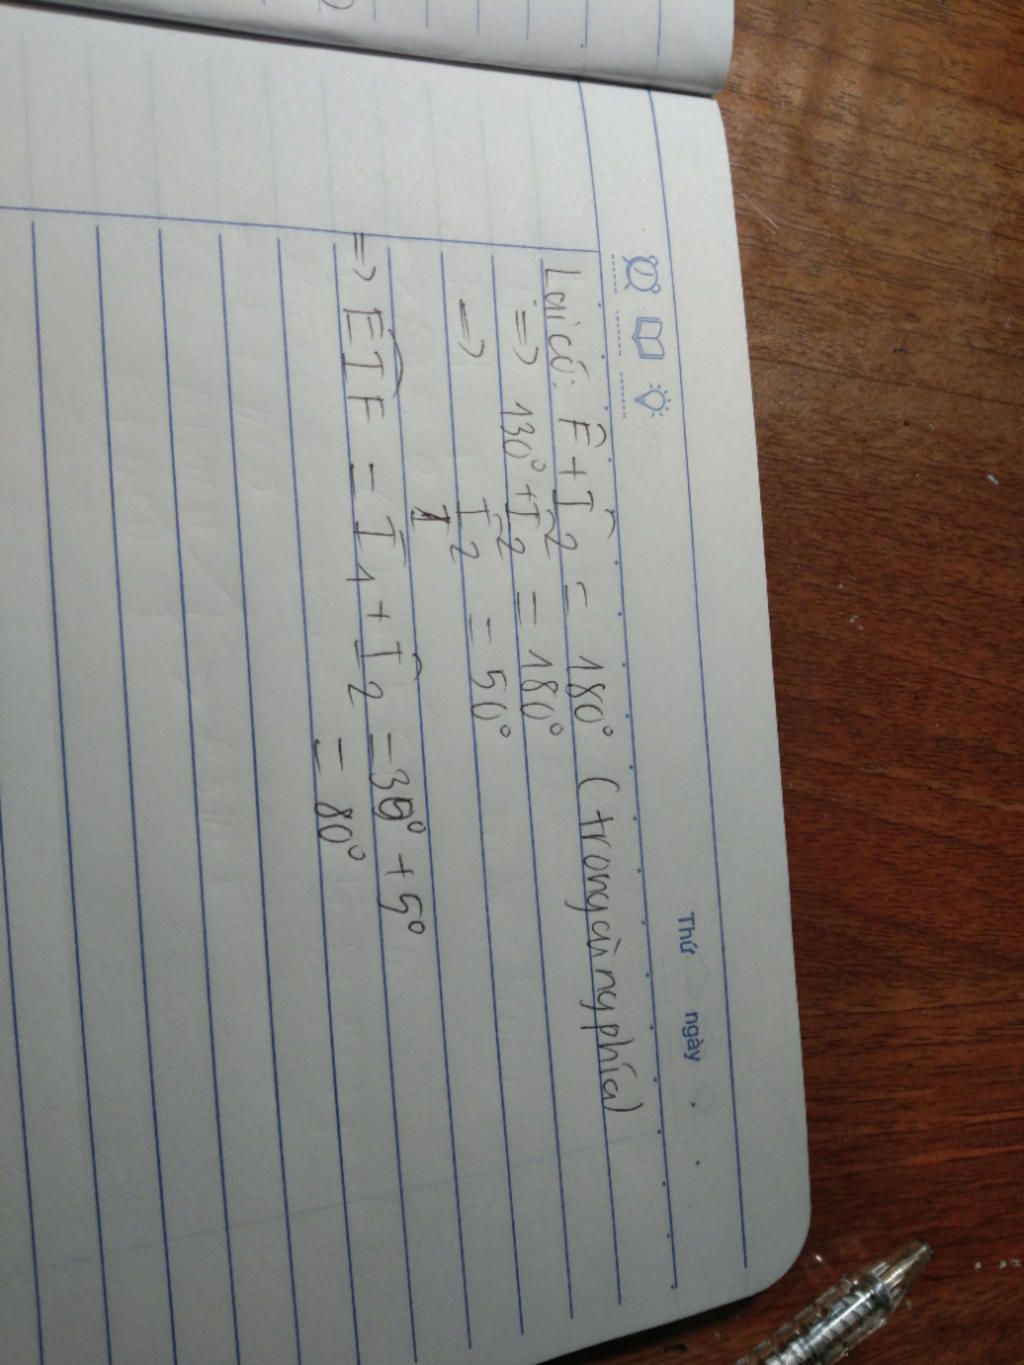 Thứ ngày
Lại có: F̂ + Î2 = 180° (trong cùng phía)
=> 130° + Î2 = 180°
=> Î2 = 50°
=> EIF = I1 + Î2 = 30° + 5°
= 80°